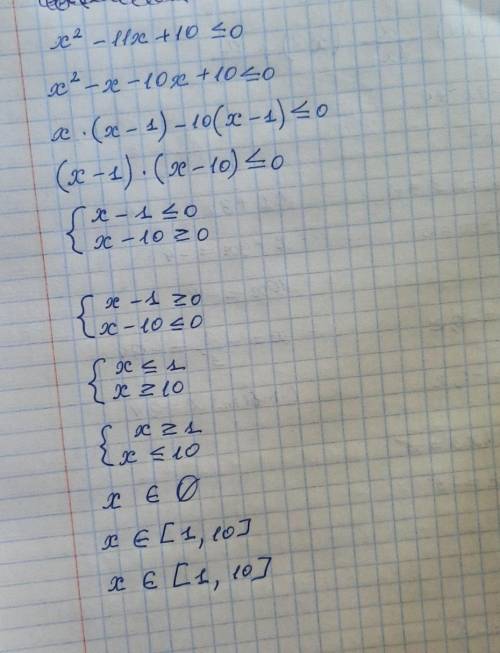 x² - 11x + 10 ≤ 0
x² - x - 10x + 10 ≤ 0
x · (x - 1) - 10(x - 1) ≤ 0
(x - 1) · (x - 10) ≤ 0
{ x - 1 ≤ 0
x - 10 ≥ 0
{ x - 1 ≥ 0
x - 10 ≤ 0
{ x ≤ 1
x ≥ 10
{ x ≥ 1
x ≤ 10
x ∈ ∅
x ∈ [1, 10]
x ∈ [1, 10]